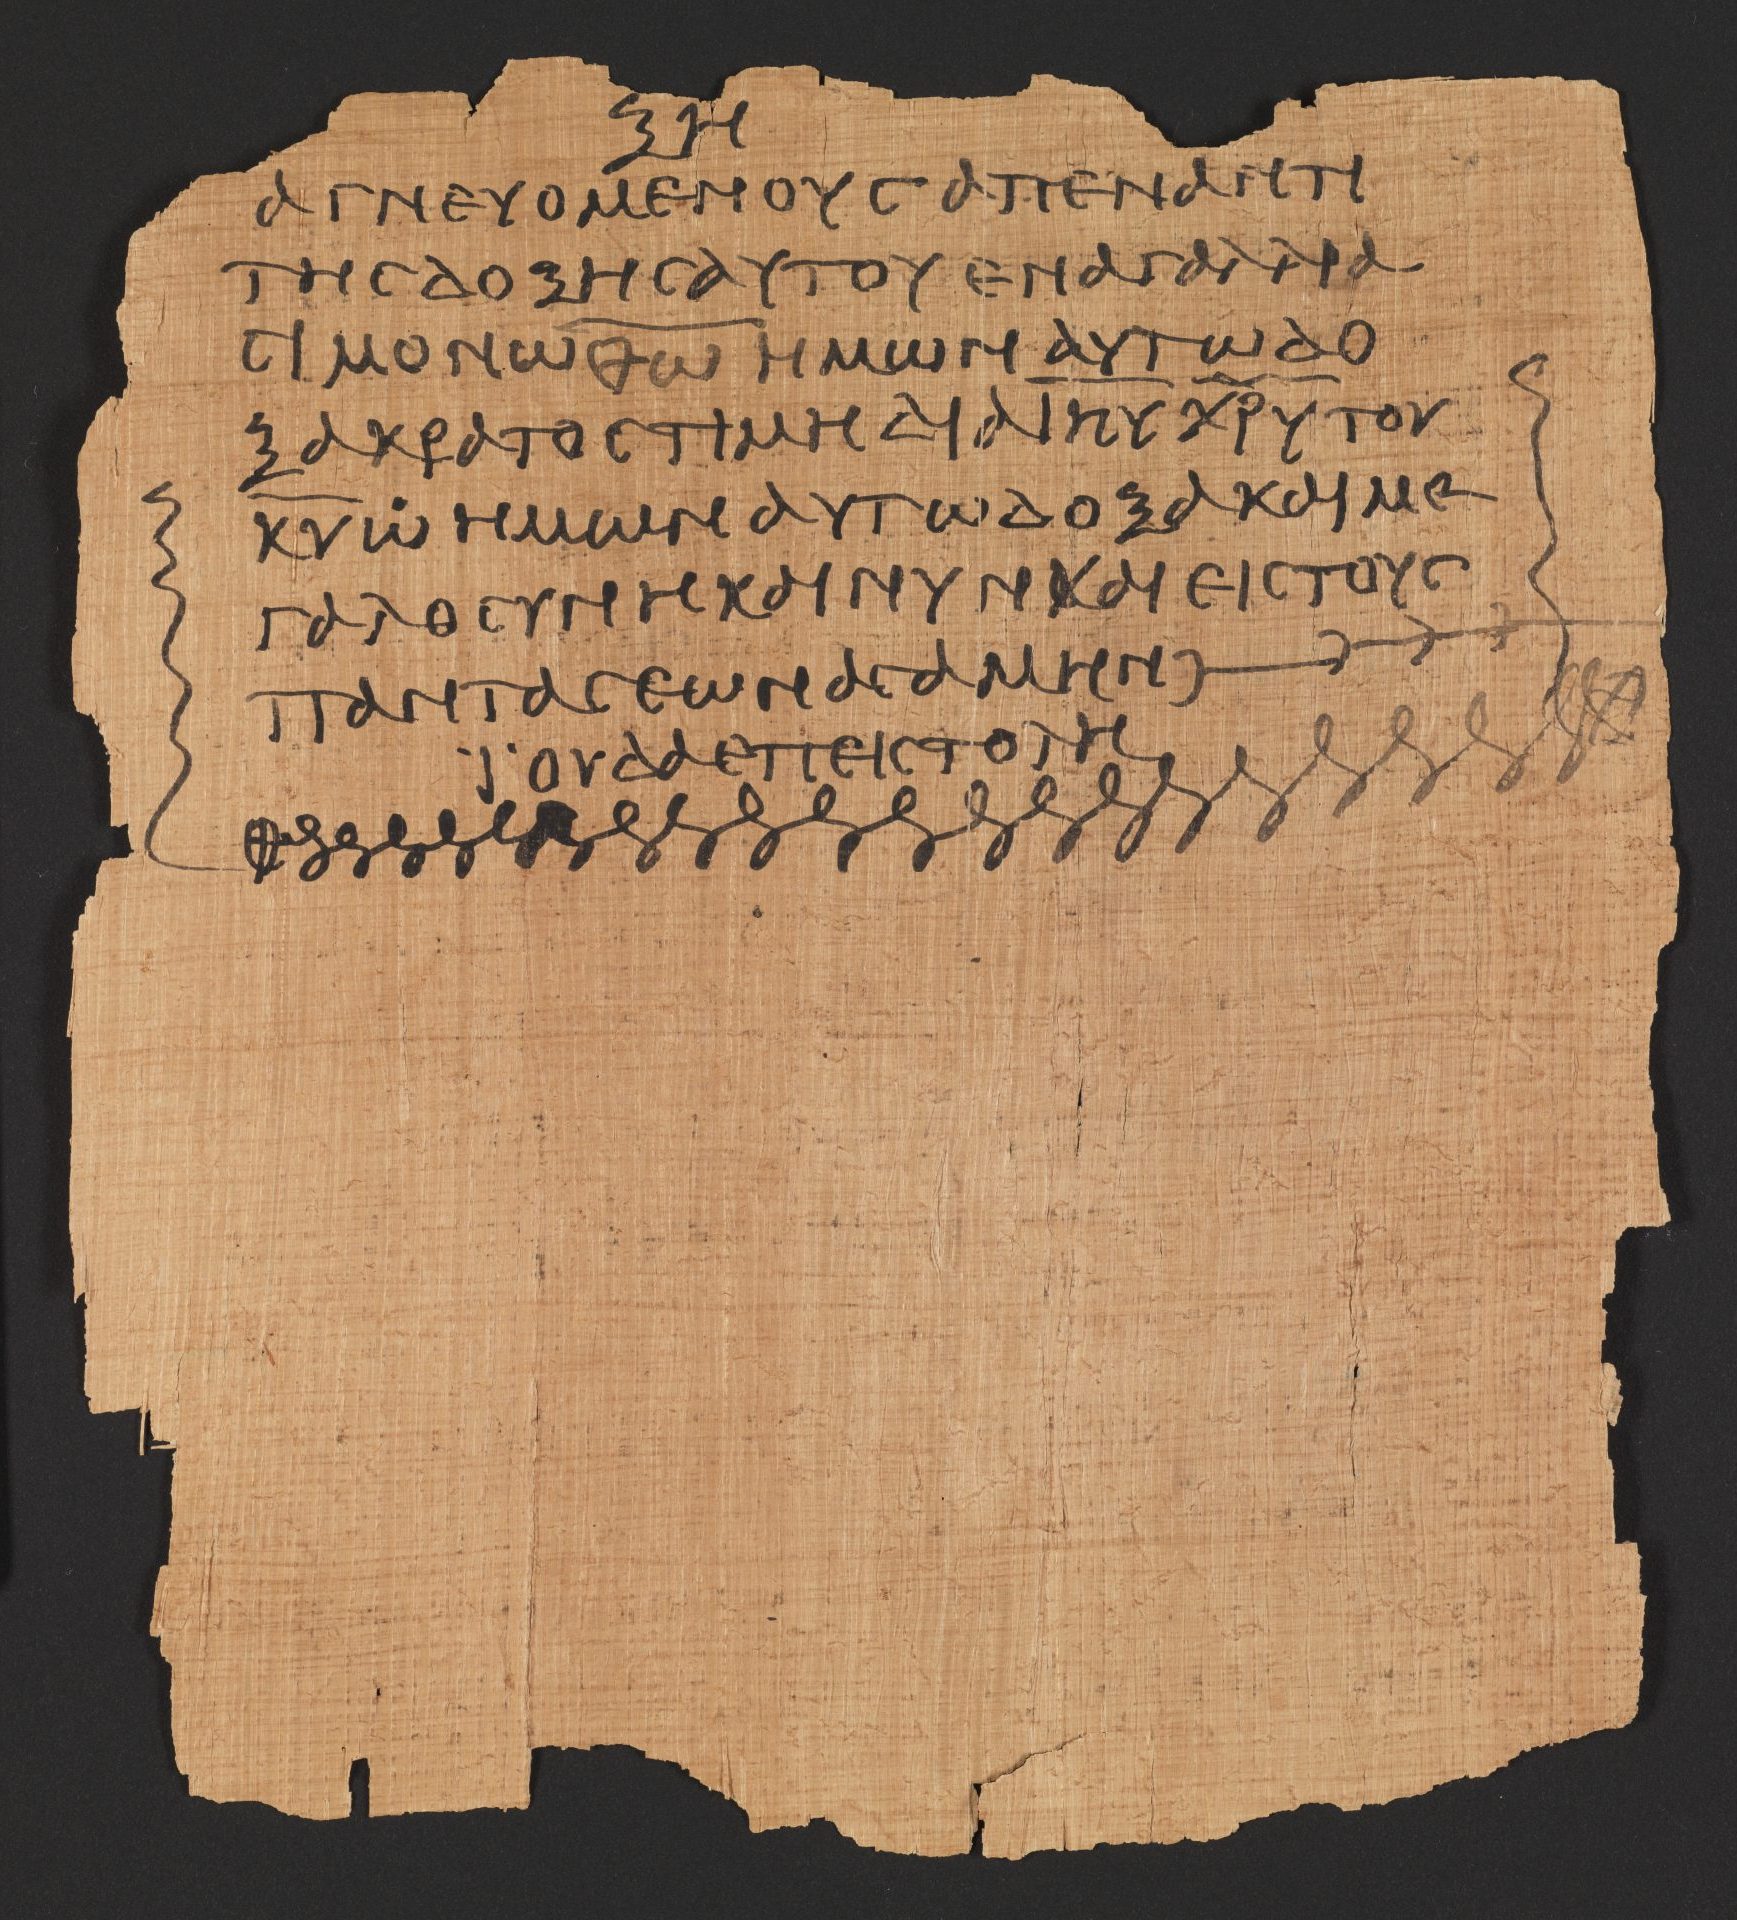 ΞΗ
ΑΓΝΕΥΟΜΕΝΟΥϹΑΠΕΝΑΝΤΙ
ΤΗϹΔΟΞΗϹΑΥΤΟΥΕΝΑΓΑΛΛΙΑ
ϹΙΜΟΝΩΘ̅Ω̅ΗΜΩΝΑΥΤΩΔΟ
ΞΑΚΡΑΤΟϹΤΙΜΗΔΙΑΙ̅Η̅Υ̅Χ̅Ρ̅Υ̅ΤΟΥ
Κ̅Υ̅ΙΩΗΜΩΝΑΥΤΩΔΟΞΑΚΑΙΜΕ
ΓΑΛΟϹΥΝΗΚΑΙΝΥΝΚΑΙΕΙϹΤΟΥϹ
ΠΑΝΤΑϹΕΩΝΑϹΑΜΗΝ
ΪΟΥΔΑΕΠΕΙϹΤΟΛΗ